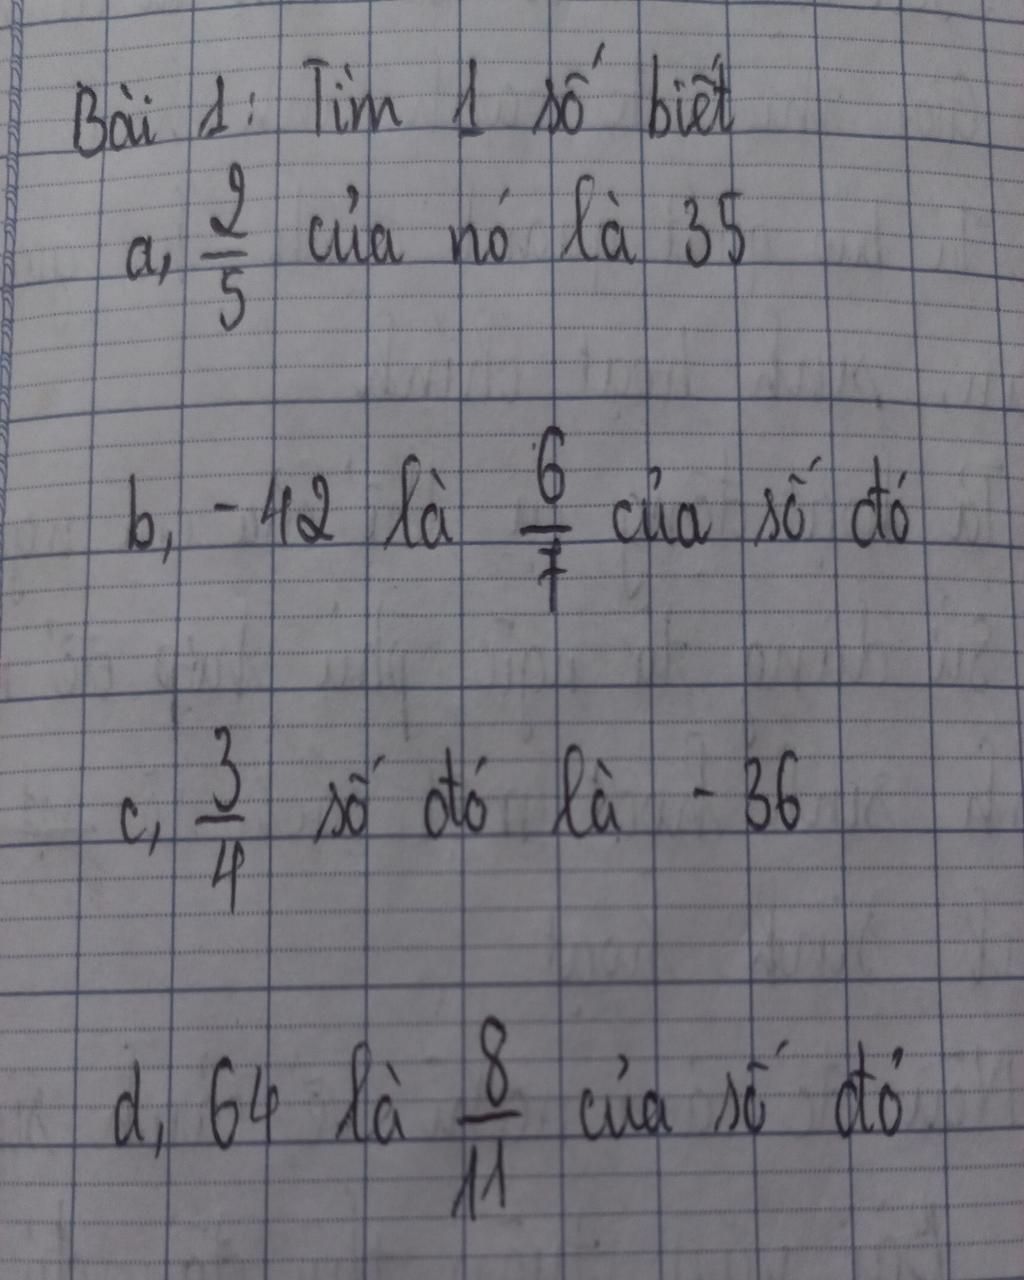 Bài 1: Tìm 1 số biết
a, 2/5 của nó là 35
b, -42 là 6/7 của số đó
c, 3/4 số đó là - 36
d, 64 là 8/11 của số đó